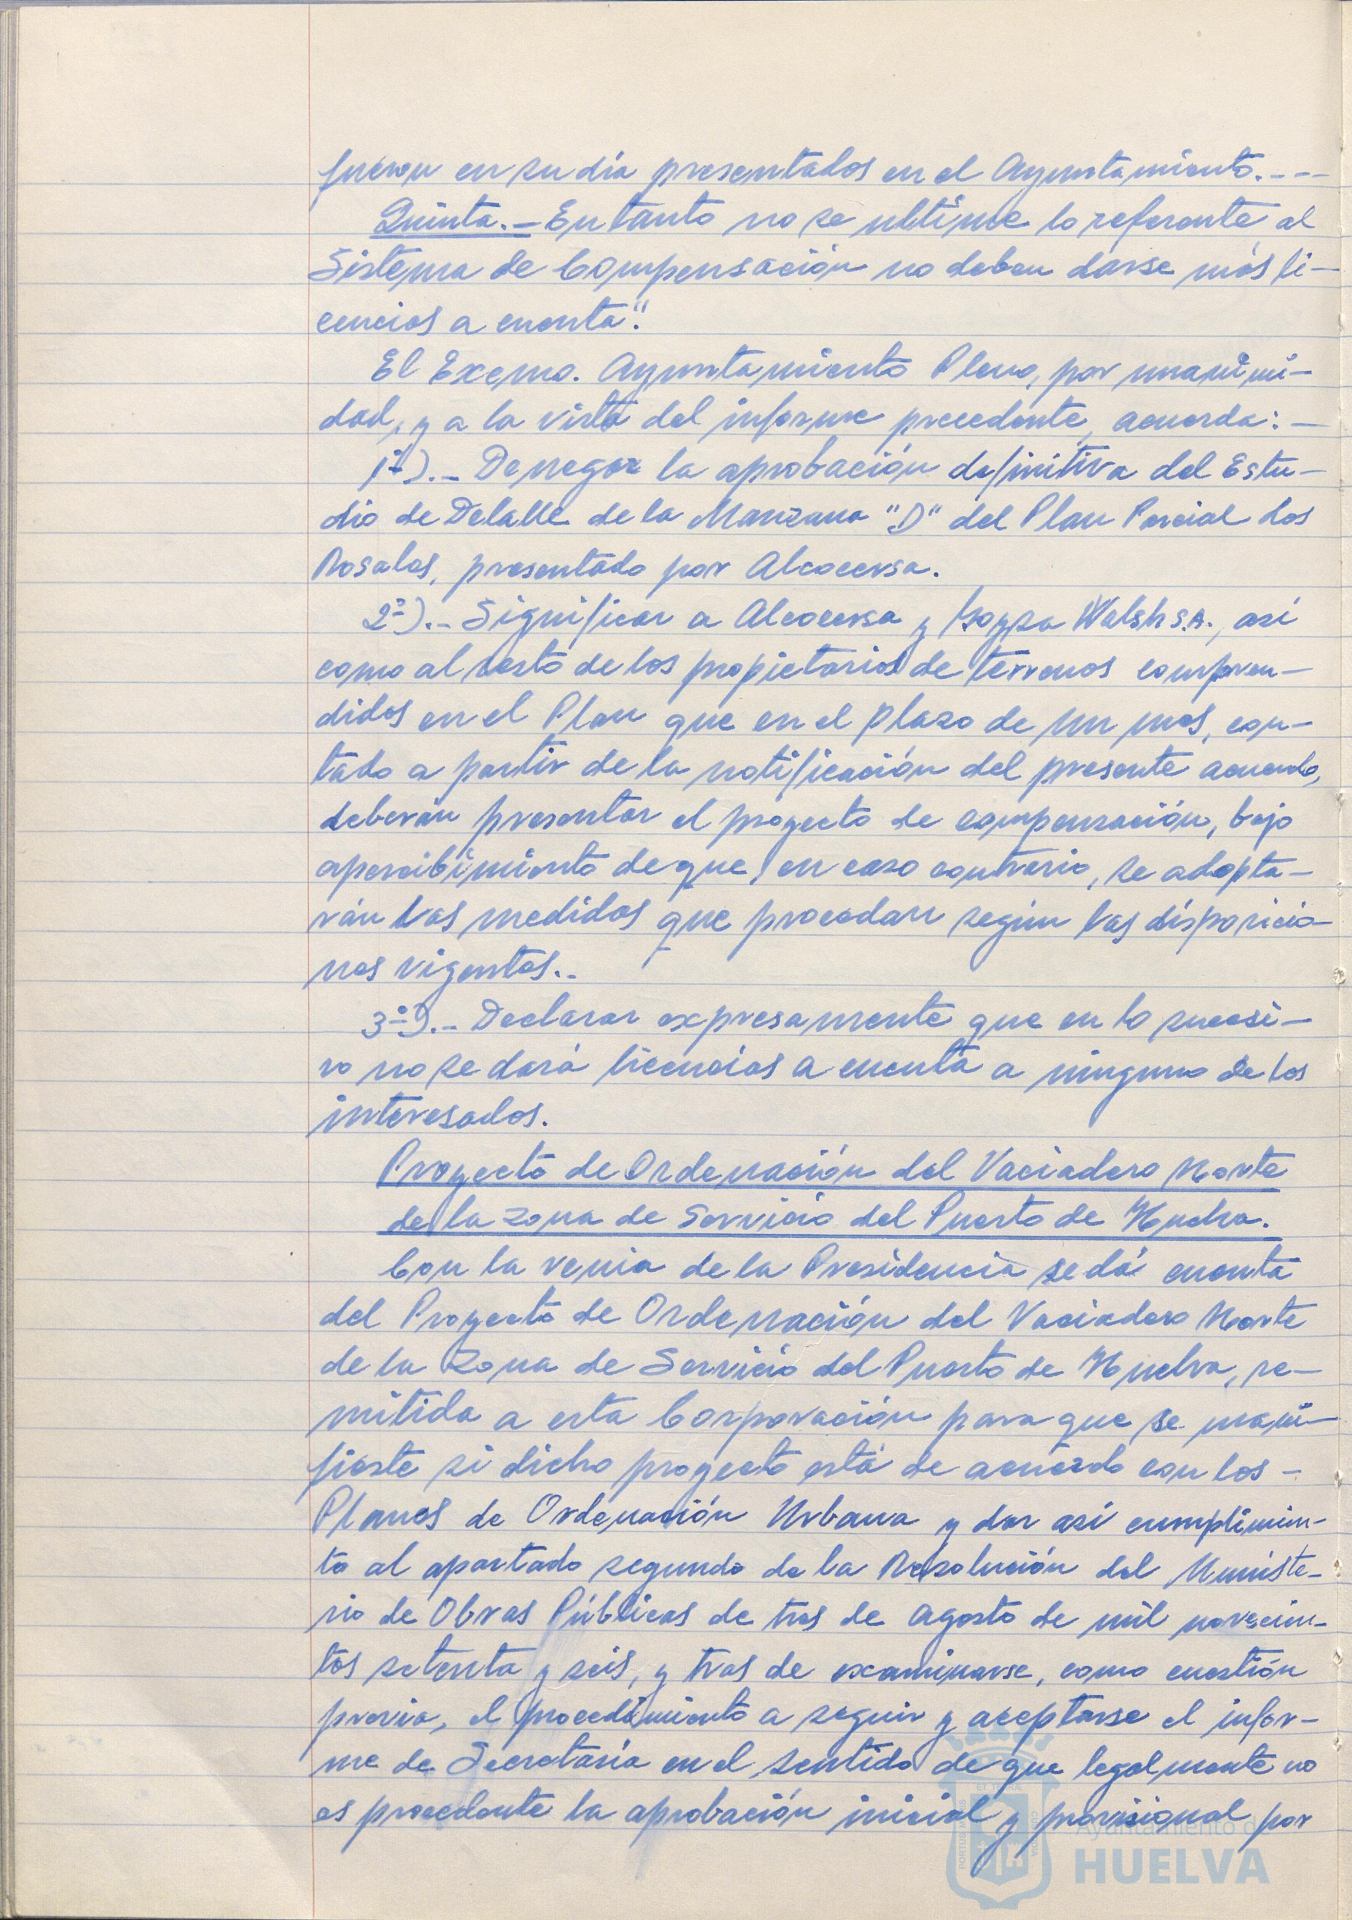 fueron en su día presentados en el Ayuntamiento.---
Quinta.- En tanto no se ultime lo referente al
Sistema de Compensación no deben darse más li-
cencias a cuenta".
El Excmo. Ayuntamiento Pleno, por unanimi-
dad, y a la vista del informe precedente, acuerda:-
1º).- Denegar la aprobación definitiva del Estu-
dio de Detalle de la Manzana "D" del Plan Parcial Los
Rosales, presentado por Alcocersa.
2º).- Significar a Alcocersa y Walsh S.A., así
como al resto de los propietarios de terrenos compren-
didos en el Plan que en el plazo de un mes, con-
tado a partir de la notificación del presente acuerdo,
deberán presentar el proyecto de compensación, bajo
apercibimiento de que, en caso contrario, se adopta-
rán las medidas que procedan según las disposicio-
nes vigentes.-
3º).- Declarar expresamente que en lo sucesi-
vo no se dará licencias a cuenta a ninguno de los
interesados.
Proyecto de Ordenación del Vaciadero Norte
de la Zona de Servicio del Puerto de Huelva.
Con la venia de la Presidencia se dá cuenta
del Proyecto de Ordenación del Vaciadero Norte
de la Zona de Servicio del Puerto de Huelva, re-
mitida a esta Corporación para que se mani-
fieste si dicho proyecto está de acuerdo con los-
Planes de Ordenación Urbana y dar así cumplimien-
to al apartado segundo de la Resolución del Ministe-
rio de Obras Públicas de tres de Agosto de mil novecien-
tos setenta y seis, y tras de examinarse, como cuestión
previa, el procedimiento a seguir y aceptarse el infor-
me de Secretaría en el sentido de que legalmente no
es procedente la aprobación inicial y provisional por
Ayuntamiento de
HUELVA